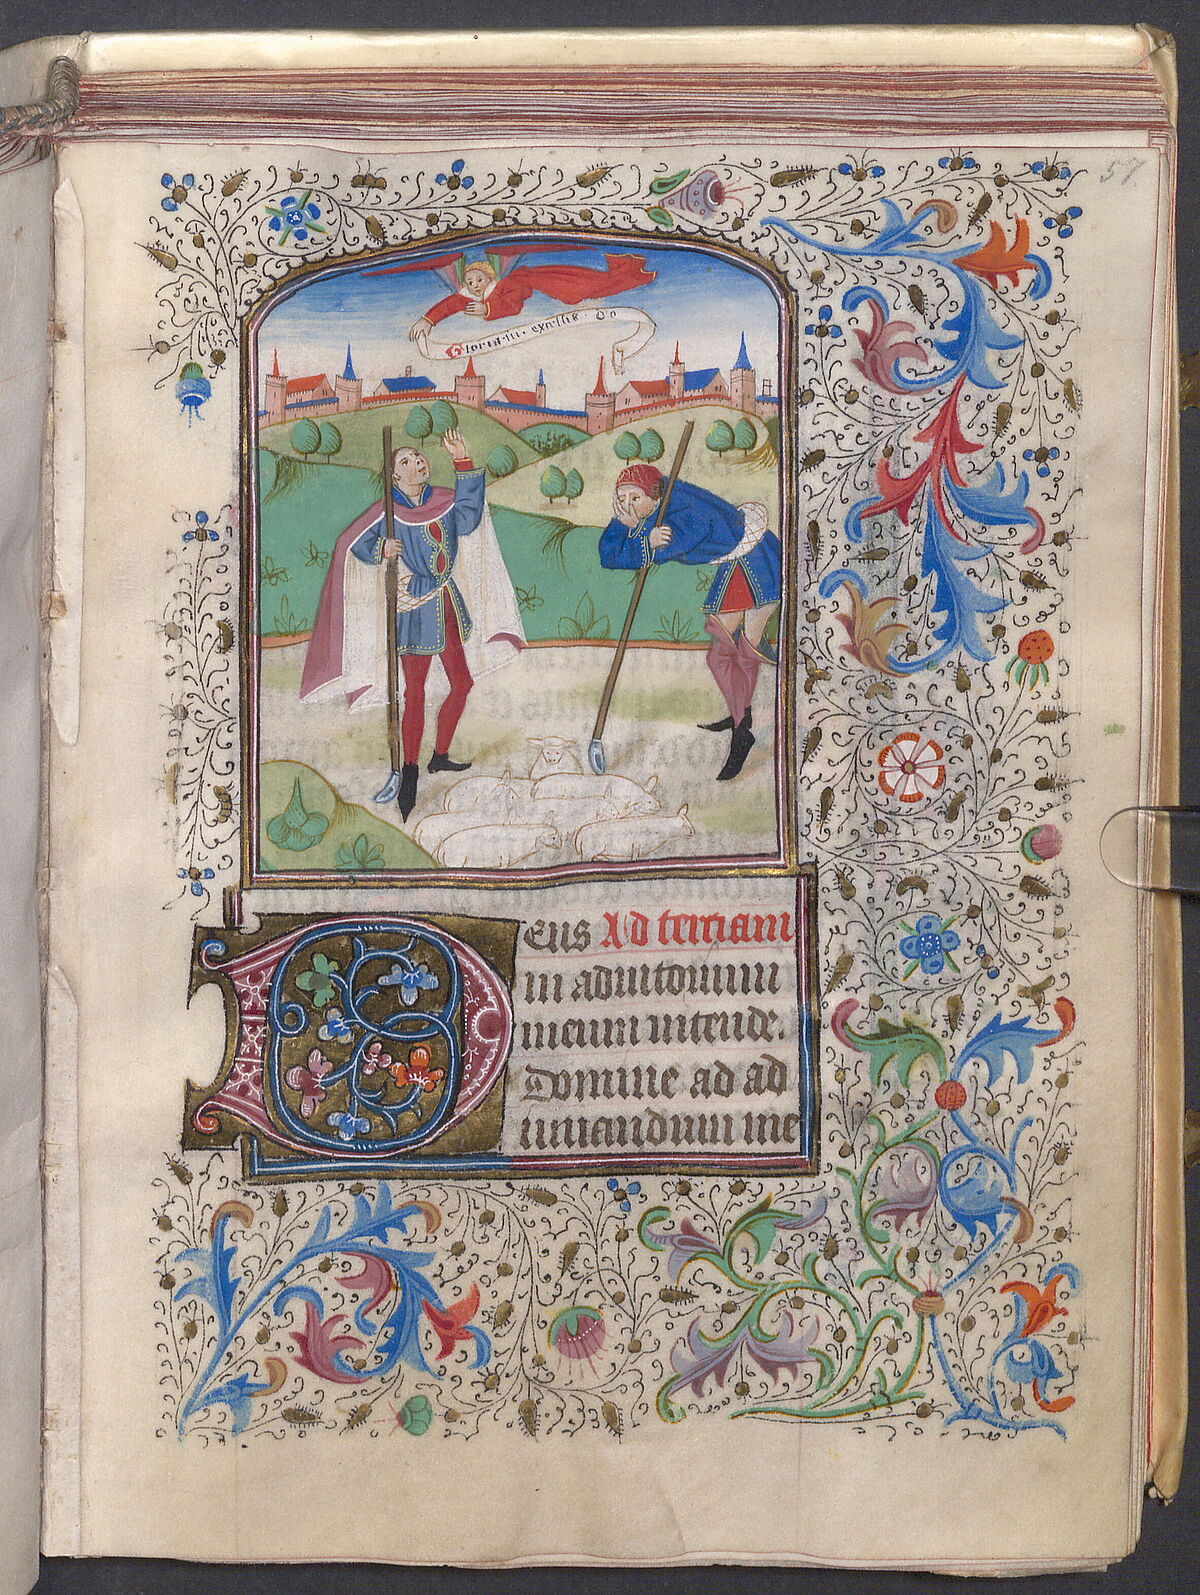 57
Gloria · in · exelsis · Do
Deus Ad terciam
in adiutorium
meum intende.
Domine ad ad
iuuandum me